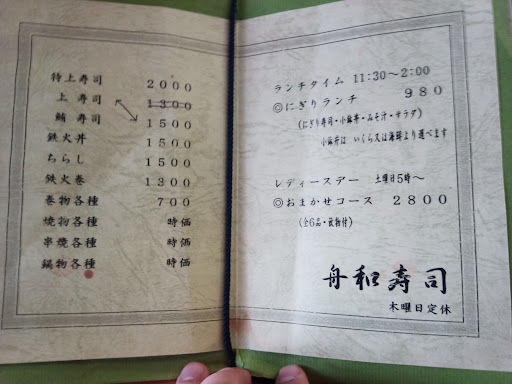 特上寿司 2000
上寿司 1300
鮪寿司 1500
鉄火丼 1500
ちらし 1500
鉄火巻 1300
巻物各種 700
焼物各種 時価
串焼各種 時価
鍋物各種 時価
ランチタイム 11:30~2:00
◎にぎりランチ 980
(にぎり寿司・小鉢丼・みそ汁・サラダ)
小鉢丼は いくら又は海鮮より選べます
レディースデー 土曜日5時~
◎おまかせコース 2800
(全6品・飲物付)
舟和寿司
木曜日定休